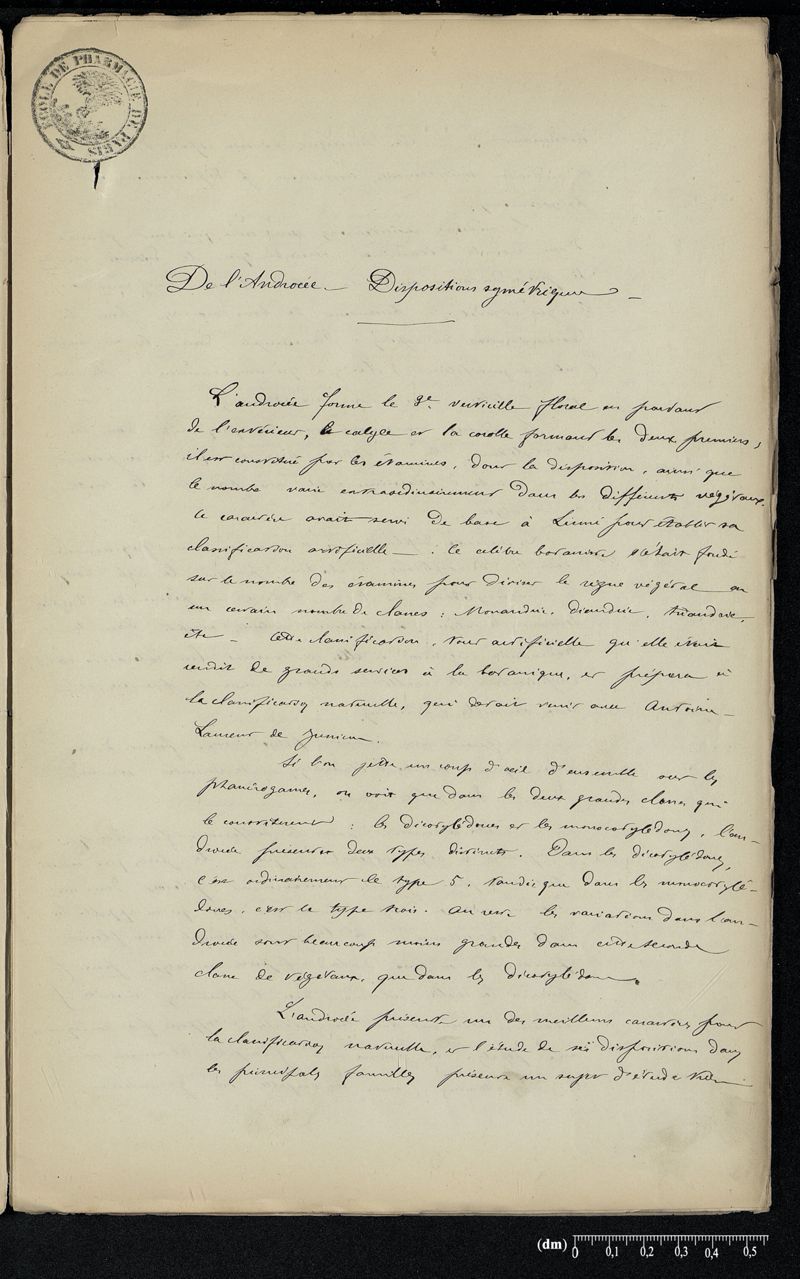 ÉCOLE DE PHARMACIE DE PARIS
De l'Androcée — Dispositions symétriques —
L'androcée forme le 3e verticille floral en partant
de l'extérieur, le calyce et la corolle formant les deux premiers,
il est constitué par les étamines, dont la disposition, ainsi que
le nombre varie extraordinairement dans les différents végétaux.
Ce caractère avait servi de base à Linné pour établir sa
classification artificielle — : le célèbre botaniste s'était fondé
sur le nombre des étamines pour diviser le règne végétal en
un certain nombre de classes : Monandrie, diandrie, triandrie,
etc — Cette classification, tout artificielle qu'elle était
rendit de grands services à la botanique, et prépara à
la classification naturelle, qui devait venir avec Antoine-
Laurent de Jussieu.
Si l'on jette un coup d'œil d'ensemble sur les
phanérogames, on voit que dans les deux grandes classes qui
le constituent : les dicotylédones et les monocotylédones, l'an-
drocée présente deux types distincts. Dans les dicotylédones,
c'est ordinairement le type 5, tandis que dans les monocotylé-
dones, c'est le type trois. Au reste les variations dans l'an-
drocée sont beaucoup moins grandes dans cette seconde
classe de végétaux, que dans les dicotylédones.
L'androcée présente un des meilleurs caractères pour
la classification naturelle, et l'étude de ses dispositions dans
les principales familles présente un sujet d'étude très
(dm) 0 0,1 0,2 0,3 0,4 0,5